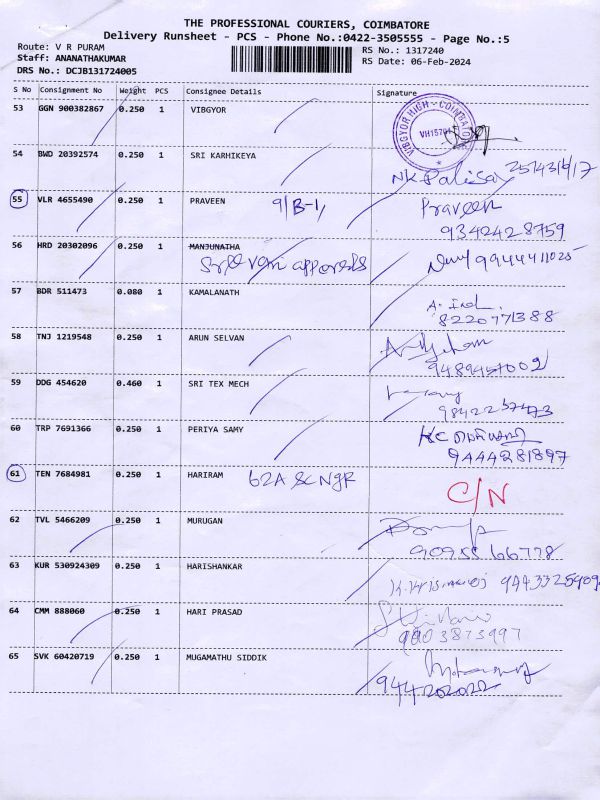 THE PROFESSIONAL COURIERS, COIMBATORE
Delivery Runsheet - PCS - Phone No.:0422-3505555 - Page No.:5
Route: V R PURAM
RS No.: 1317240
Staff: ANANATHAKUMAR
RS Date: 06-Feb-2024
DRS No.: DCJB131724005
S No Consignment No Weight PCS Consignee Details Signature
53 GGN 900382867 0.250 1 VIBGYOR
VIBGYOR HIGH - COIMBATORE
54 BWD 20392574 0.250 1 SRI KARHIKEYA
55 VLR 4655490 0.250 1 PRAVEEN 9/B-1, Praveen
9342428759
56 HRD 20302096 0.250 1 MANJUNATHA
9944411025
57 BDR 511473 0.080 1 KAMALANATH
8220771388
58 TNJ 1219548 0.250 1 ARUN SELVAN
9489457002
59 DDG 454620 0.460 1 SRI TEX MECH
60 TRP 7691366 0.250 1 PERIYA SAMY
9444281897
61 TEN 7684981 0.250 1 HARIRAM 62A SC NGR C/N
62 TVL 5466209 0.250 1 MURUGAN
9095566778
63 KUR 530924309 0.250 1 HARISHANKAR
64 CMM 888060 0.250 1 HARI PRASAD
9003873997
65 SVK 60420719 0.250 1 MUGAMATHU SIDDIK